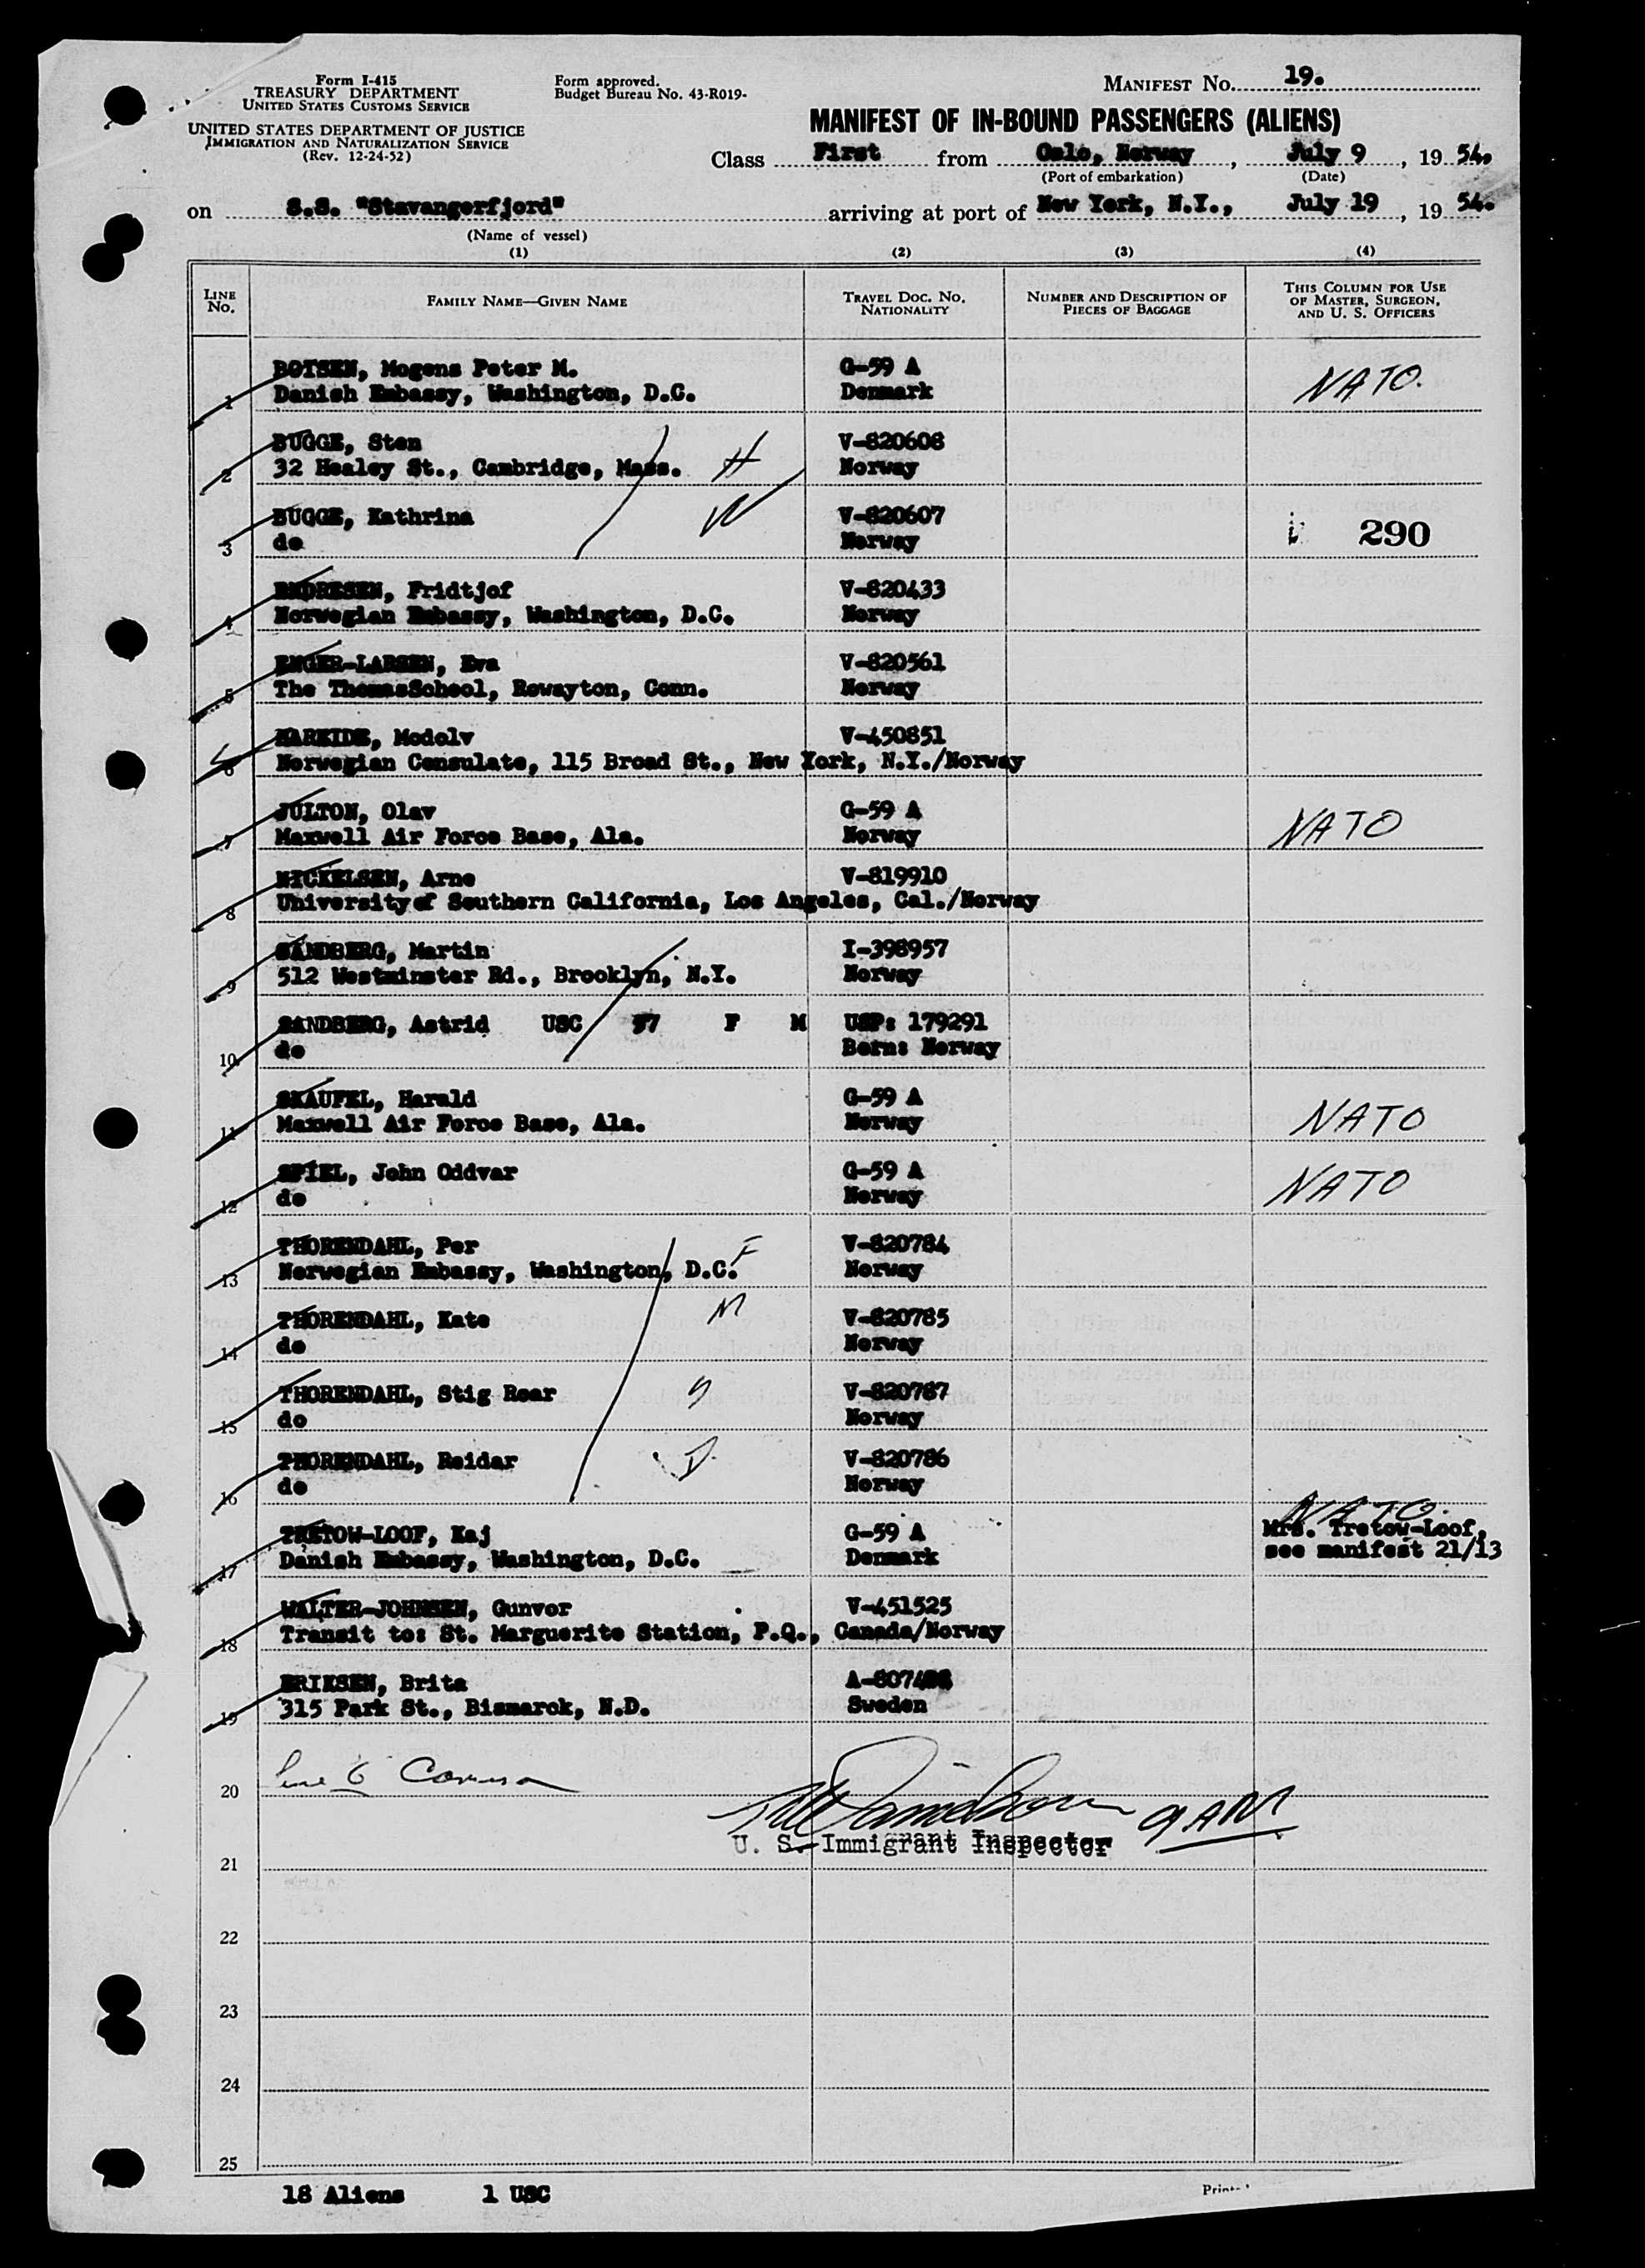 Form I-415
TREASURY DEPARTMENT
UNITED STATES CUSTOMS SERVICE
UNITED STATES DEPARTMENT OF JUSTICE
IMMIGRATION AND NATURALIZATION SERVICE
(Rev. 12-24-52)
Form approved.
Budget Bureau No. 43-R019-
MANIFEST No. 19.
MANIFEST OF IN-BOUND PASSENGERS (ALIENS)
Class First from Oslo, Norway, July 9, 19 54.
(Port of embarkation) (Date)
on S.S. "Stavangerfjord" arriving at port of New York, N.Y., July 19, 19 54.
(Name of vessel)
(1) (2) (3) (4)
LINE No. FAMILY NAME—GIVEN NAME TRAVEL DOC. No. NATIONALITY NUMBER AND DESCRIPTION OF PIECES OF BAGGAGE THIS COLUMN FOR USE OF MASTER, SURGEON, AND U. S. OFFICERS
BOTSEN, Mogens Peter M. G-59 A NATO.
1 Danish Embassy, Washington, D.C. Denmark
BUGGE, Sten V-820608
2 32 Healey St., Cambridge, Mass. H Norway
BUGGE, Kathrina W V-820607
3 do Norway 290
ENDRESEN, Fridtjof V-820433
4 Norwegian Embassy, Washington, D.C. Norway
ENGER-LARSEN, Eva V-820561
5 The ThomasSchool, Rowayton, Conn. Norway
HAREIDE, Modolv V-450851
6 Norwegian Consulate, 115 Broad St., New York, N.Y./Norway
JULTON, Olav G-59 A NATO
7 Maxwell Air Force Base, Ala. Norway
MICKELSEN, Arne V-819910
8 Universityof Southern California, Los Angeles, Cal./Norway
SANDBERG, Martin I-398957
9 512 Westminster Rd., Brooklyn, N.Y. Norway
SANDBERG, Astrid USC 57 F M USP: 179291
10 do Born: Norway
SKAUFEL, Harald G-59 A NATO
11 Maxwell Air Force Base, Ala. Norway
SPIEL, John Oddvar G-59 A NATO
12 do Norway
THORENDAHL, Per F V-820784
13 Norwegian Embassy, Washington, D.C. Norway
THORENDAHL, Kate M V-820785
14 do Norway
THORENDAHL, Stig Roar V-820787
15 do Norway
THORENDAHL, Reidar V-820786
16 do Norway
NATO.
TRETOW-LOOF, Kaj G-59 A Mrs. Tretow-Loof,
17 Danish Embassy, Washington, D.C. Denmark see manifest 21/13
WALTER-JOHNSEN, Gunvor V-451525
18 Transit to: St. Marguerite Station, P.Q., Canada/Norway
ERIKSEN, Brita
19 315 Park St., Bismarck, N.D. Sweden
20 line 6
U. S. Immigrant Inspector
21
22
23
24
25
18 Aliens 1 USC